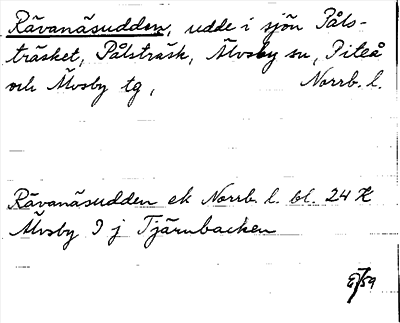 Rävanäsudden, udde i sjön Påls-
träsket, Pålsträsk, Älvsby sn, Piteå
och Älvsby tg, Norrb. l.
Rävanäsudden ek Norrb. l. bl. 24 K
Älvsby I j Tjärnbacken
/59